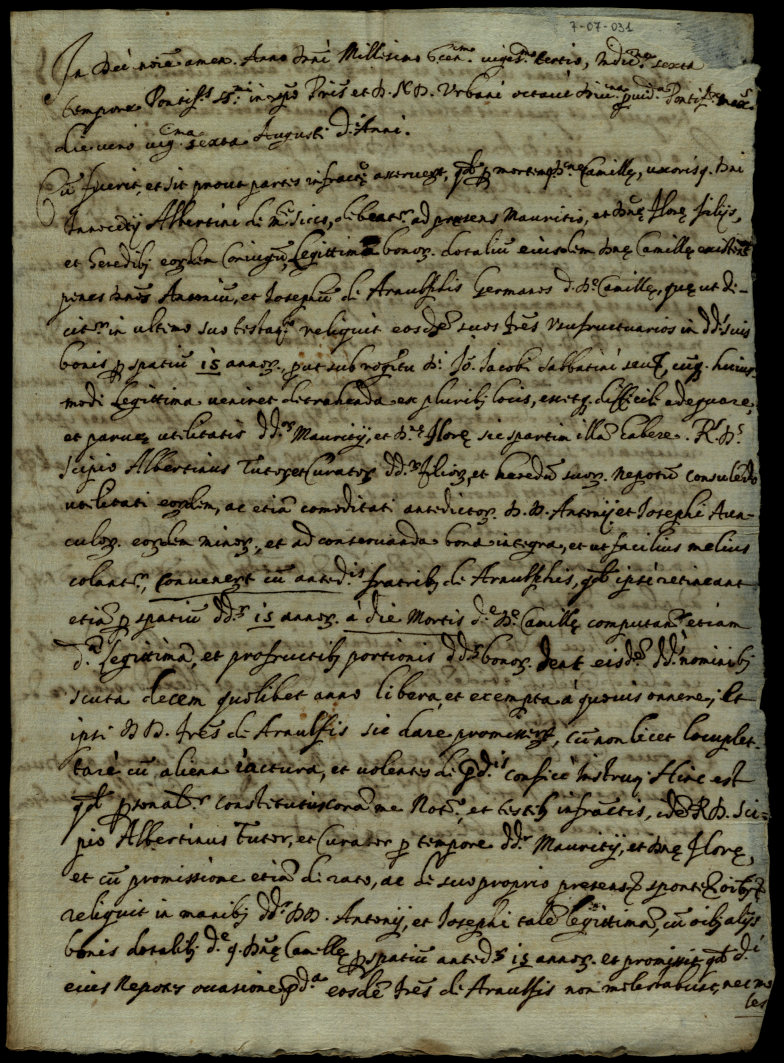 7-07-031
In Dei noie amen. Anno Dni Millesimo sexcen.mo viges.mo tertio, Indic.ne sexta
tempore Pontif.s S.mi in Xpo Pris et D. N. D. Urbani octavi Divi.na pvid.a Pontif. max.
die vero vig.ma sexta Augusti d.i Anni.
Cu fuerit, et sit prout partes infracte asserverunt, qd p mortem q. D.ne Camille, uxoris q. Dni
Innocetij Albertini de M. Sicco, debeat.r ad presens Mauritio, et Dne Flore filijs,
et heredib eorudem Coniugu, legittima bonor. dotaliu eiusdem Dne Camille existent
penes Dnos Antoniu, et Josephu de Arnulphis Germanos d. D.e Camille, que ut di-
citr in ultimo suo testam.o reliquit eosde suos fres usufructuarios in dd. suis
bonis p spatiu 15 annor., put sub rogitu D. Jo. Jacobi Sabbatini seu, cuq. huius
modi legittima veniret detrahenda ex plurib locis, essetq. difficile adequare,
et parve utilitatis dd. Mauritij, et D.e Flore sic spartim illa habere. R. D.
Scipio Albertinus Tutor, et Curator dd. filior, et heredu suor. nepotu consulendo
utilitati eorudem, ac etia comoditati antedictor. D. D. Antonij et Josephi Avu-
culor. eorudem minor, et ad conservanda bona integra, et ut facilius melius
colantr, convenerut cu anted.is fratrib de Arnulphis, qd ipsi retineant
etia p spatiu dd. 15 annor. à die Mortis d.e D.e Camille computan. etiam
d.a legittima, et pro fructib portionis dd. bonor. dent eisd. dd. nominib
scuta decem quolibet anno libera, et exempta à quovis onnere; Et
ipsi D D. fres de Arnulfis sic dare promisserut, cu non licet locuplet-
tare cu aliena iactura, et volentes de pd.is confice Instrum. Hinc est
qd psonalr constitutus cora me Not.o, et testib infractis, ide R. D. Sci-
pio Albertinus Tutor, et Curator p tempore dd. Mauritij, et Dne Flore,
et cu promissione etia de rato, ac de suo proprio presens sponte oib
reliquit in manib dd. D D. Antonij, et Josephi tale legittima, cu oib alijs
bonis dotalib d.e q. Dne Camille p spatiu anted. 15 annor. et promisit qd d.i
eius Nepotes occasione pd.a eosde fres de Arnulfis non molestabunt, nec mo
les